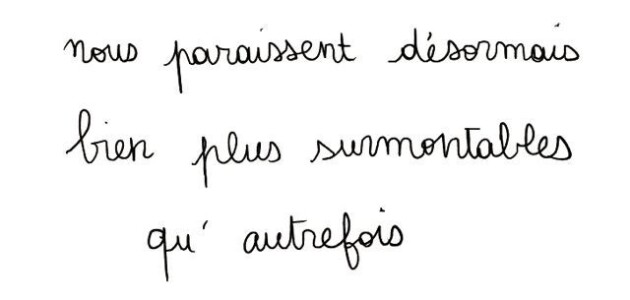 nous paraissent désormais
bien plus surmontables
qu' autrefois